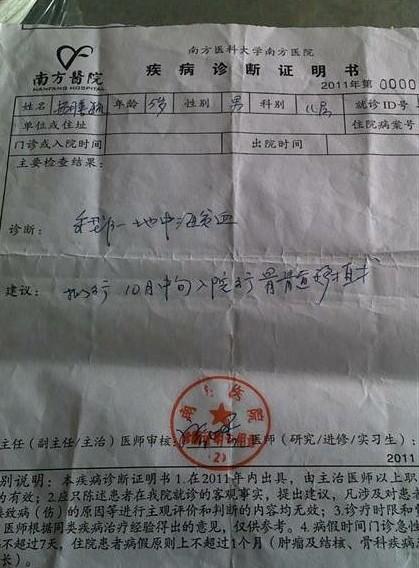 南方醫院
NANFANG HOSPITAL
南方医科大学南方医院
疾病诊断证明书
2011年第 0000
姓名 年龄 5岁 性别 男 科别 儿 就诊ID号
单位或住址 住院病案号
门诊或入院时间 出院时间
主要检查结果:
诊断: 重型β-地中海贫血
建议: 拟于10月中旬入院行骨髓移植术
南方医院
(2)
主任(副主任/主治)医师审核: 医师(研究/进修/实习生):
2011
别说明:本疾病诊断证明书1.在2011年内出具,由主治医师以上职
的有效;2.应只陈述患者在我院就诊的客观事实,提出建议,凡涉及对患
致病(伤)的原因等进行主观评价和判断的内容均无效;3.诊疗时限和
医师根据同类疾病治疗经验得出的意见,仅供参考。4.病假时间门诊急
不超过7天,住院患者病假原则上不超过1个月(肿瘤及结核、骨科疾病
长)。